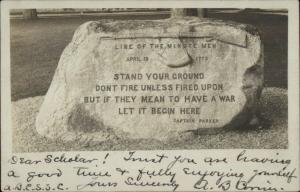 LINE OF THE MINUTE MEN
APRIL 19 1775
STAND YOUR GROUND
DONT FIRE UNLESS FIRED UPON
BUT IF THEY MEAN TO HAVE A WAR
LET IT BEGIN HERE
CAPTAIN PARKER
Dear Scholar! Trust you are having
a good time & fully enjoying yourself
Yours Sincerely A. B.